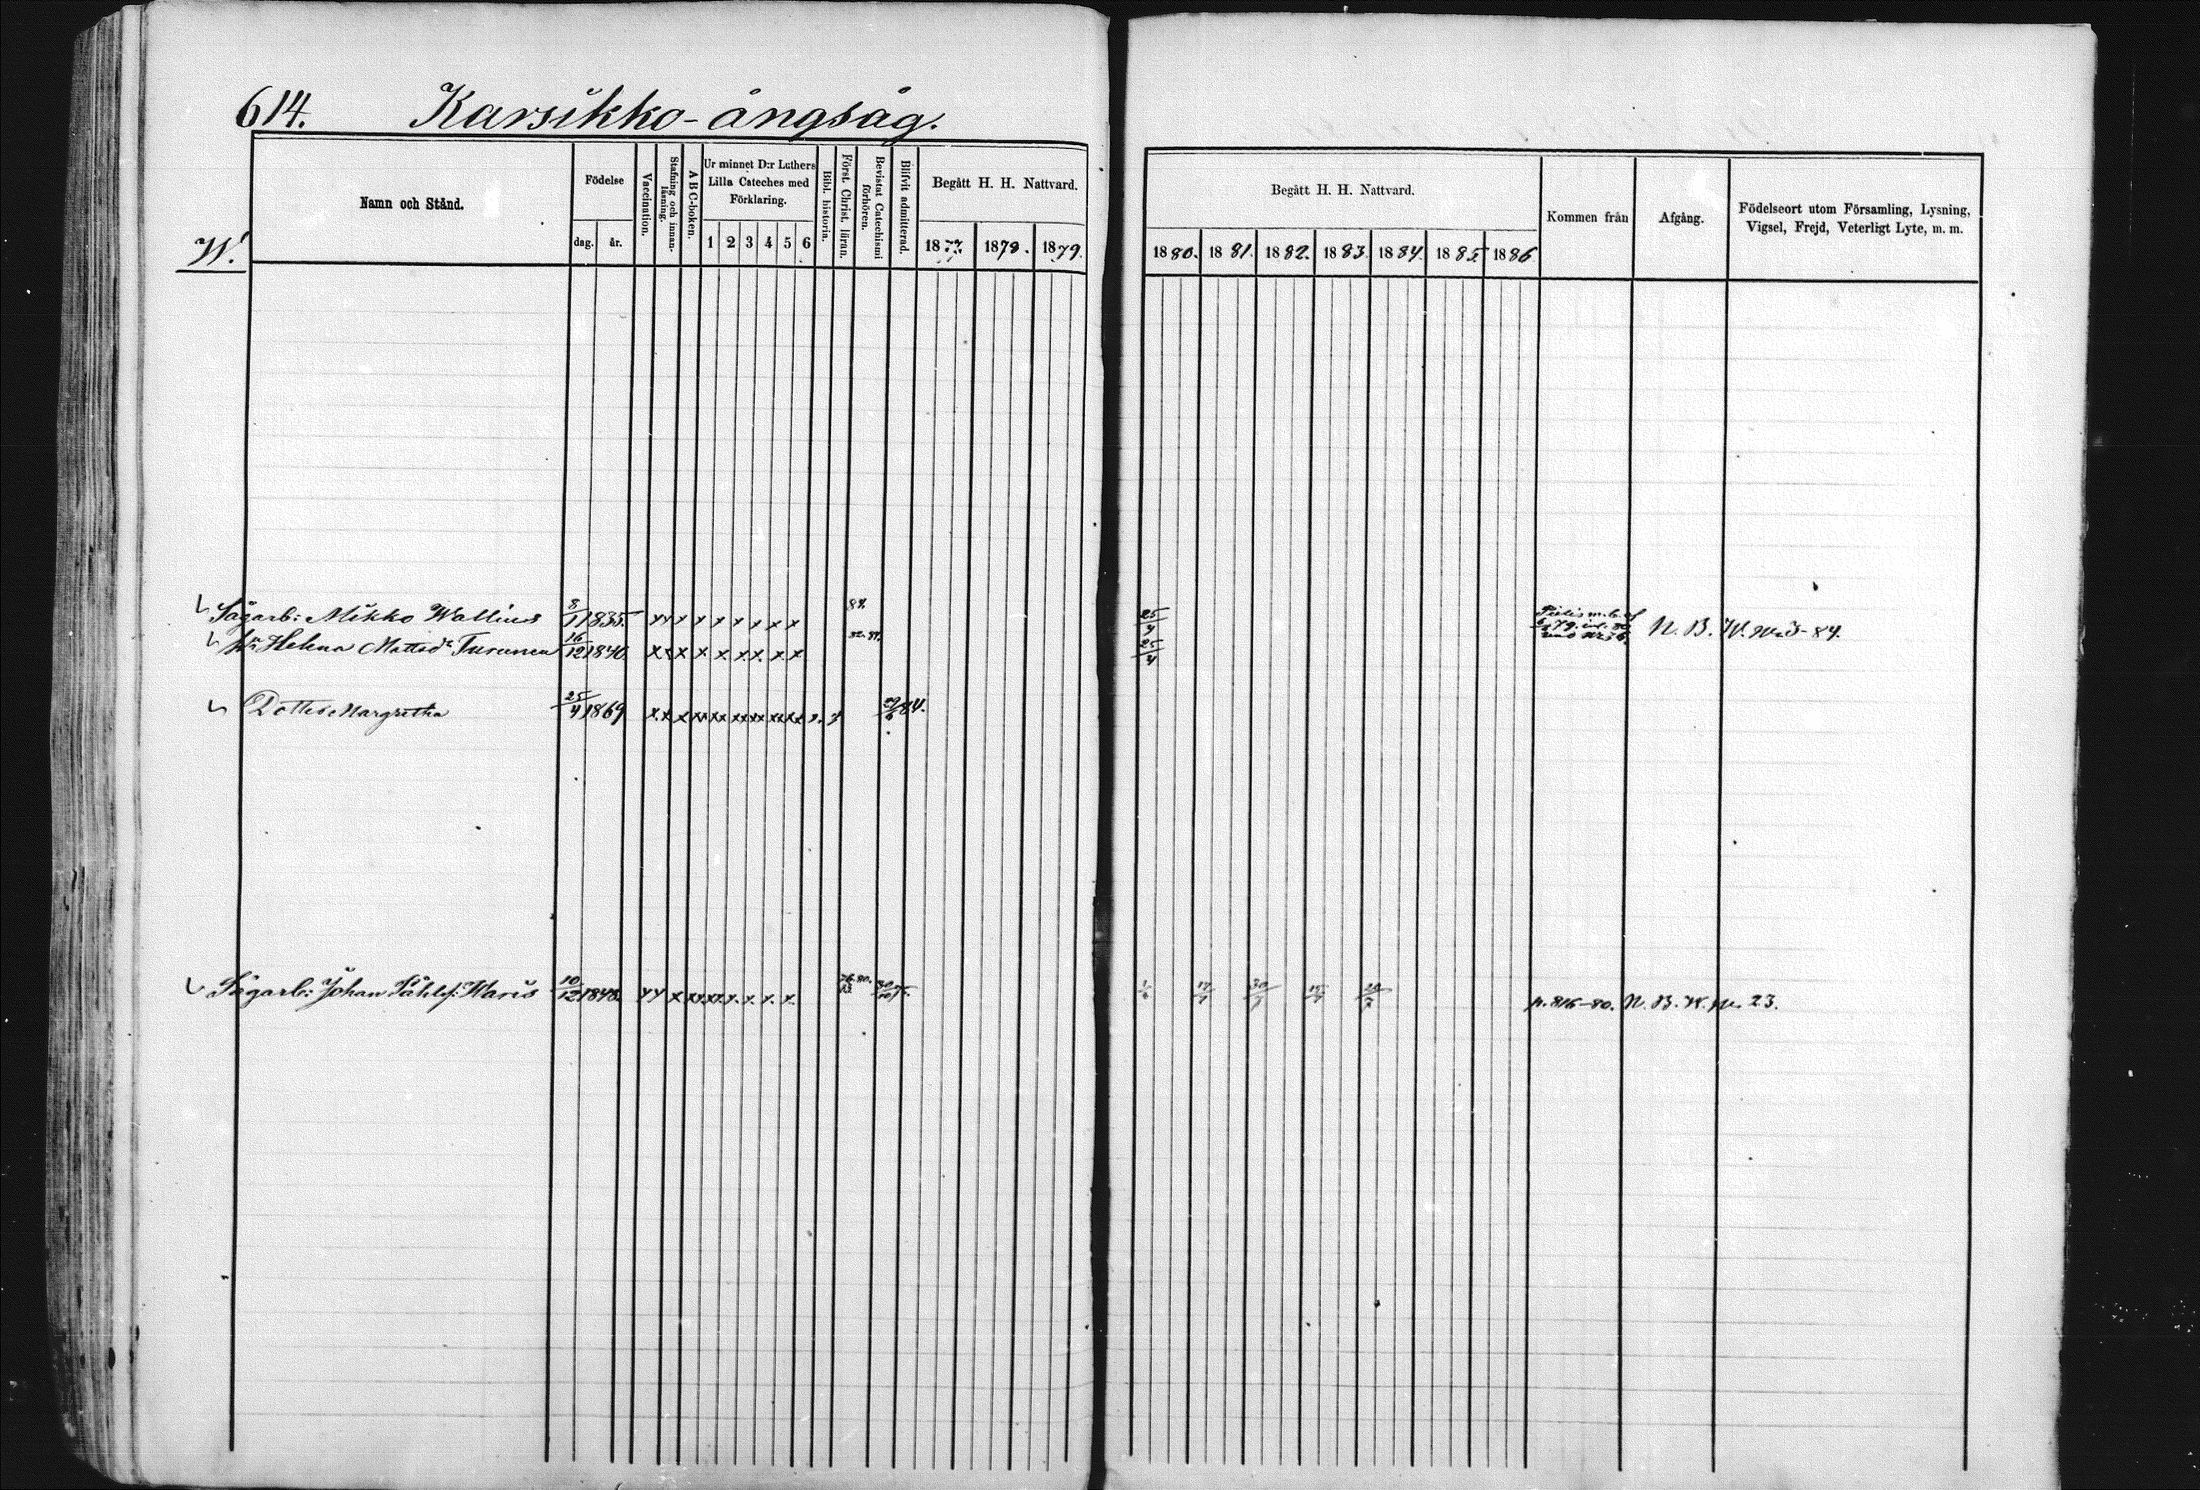 614. Karsikko-ångsåg.
W.
Namn och Stånd.
Födelse
dag. år.
Vaccination.
Stafning och innan-
läsning.
A B C-boken.
Ur minnet D:r Luthers
Lilla Cateches med
Förklaring.
1 2 3 4 5 6
Bibl. historia.
Först. Christ. läran.
Bevistat Catechismi
förhören.
Blifvit admitterad.
Begått H. H. Nattvard.
1877. 1878. 1879.
Begått H. H. Nattvard.
1880. 1881. 1882. 1883. 1884. 1885. 1886
Kommen från
Afgång.
Födelseort utom Församling, Lysning,
Vigsel, Frejd, Veterligt Lyte, m. m.
Sågarb: Mikko Wallius 8/1 1835. x x x x x x x x x 84. 25/4 N. B. W. 3-84.
h:u Helena Mattsd:r Turunen 16/12 1840. x x x x x x x x x 82. 84. 25/4
Dotter Margretha 25/4 1869 x x x xx xx xx xx xx xx x. x 29/6 84.
Sågarb: Johan Påhlsf: Waris 10/12 1848. x x x xx xx x. x. x. x. 30/10 p. 816-80. N. B. W. 23.